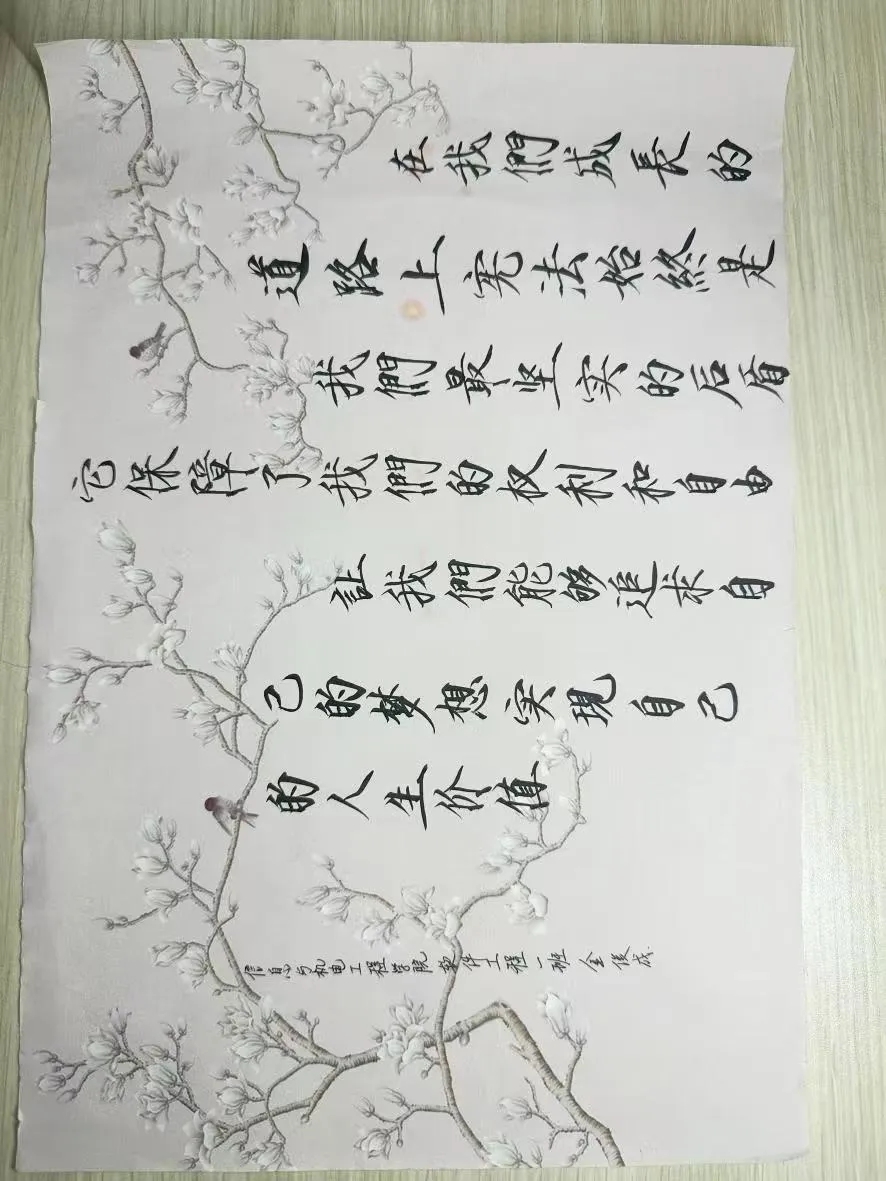 在我們成長的
道路上宪法始终是
我們最坚实的后盾
它保障了我們的权利和自由
让我們能够追求自
己的梦想实現自己
的人生价值
信息与机电工程学院 软件工程一班 金俊成